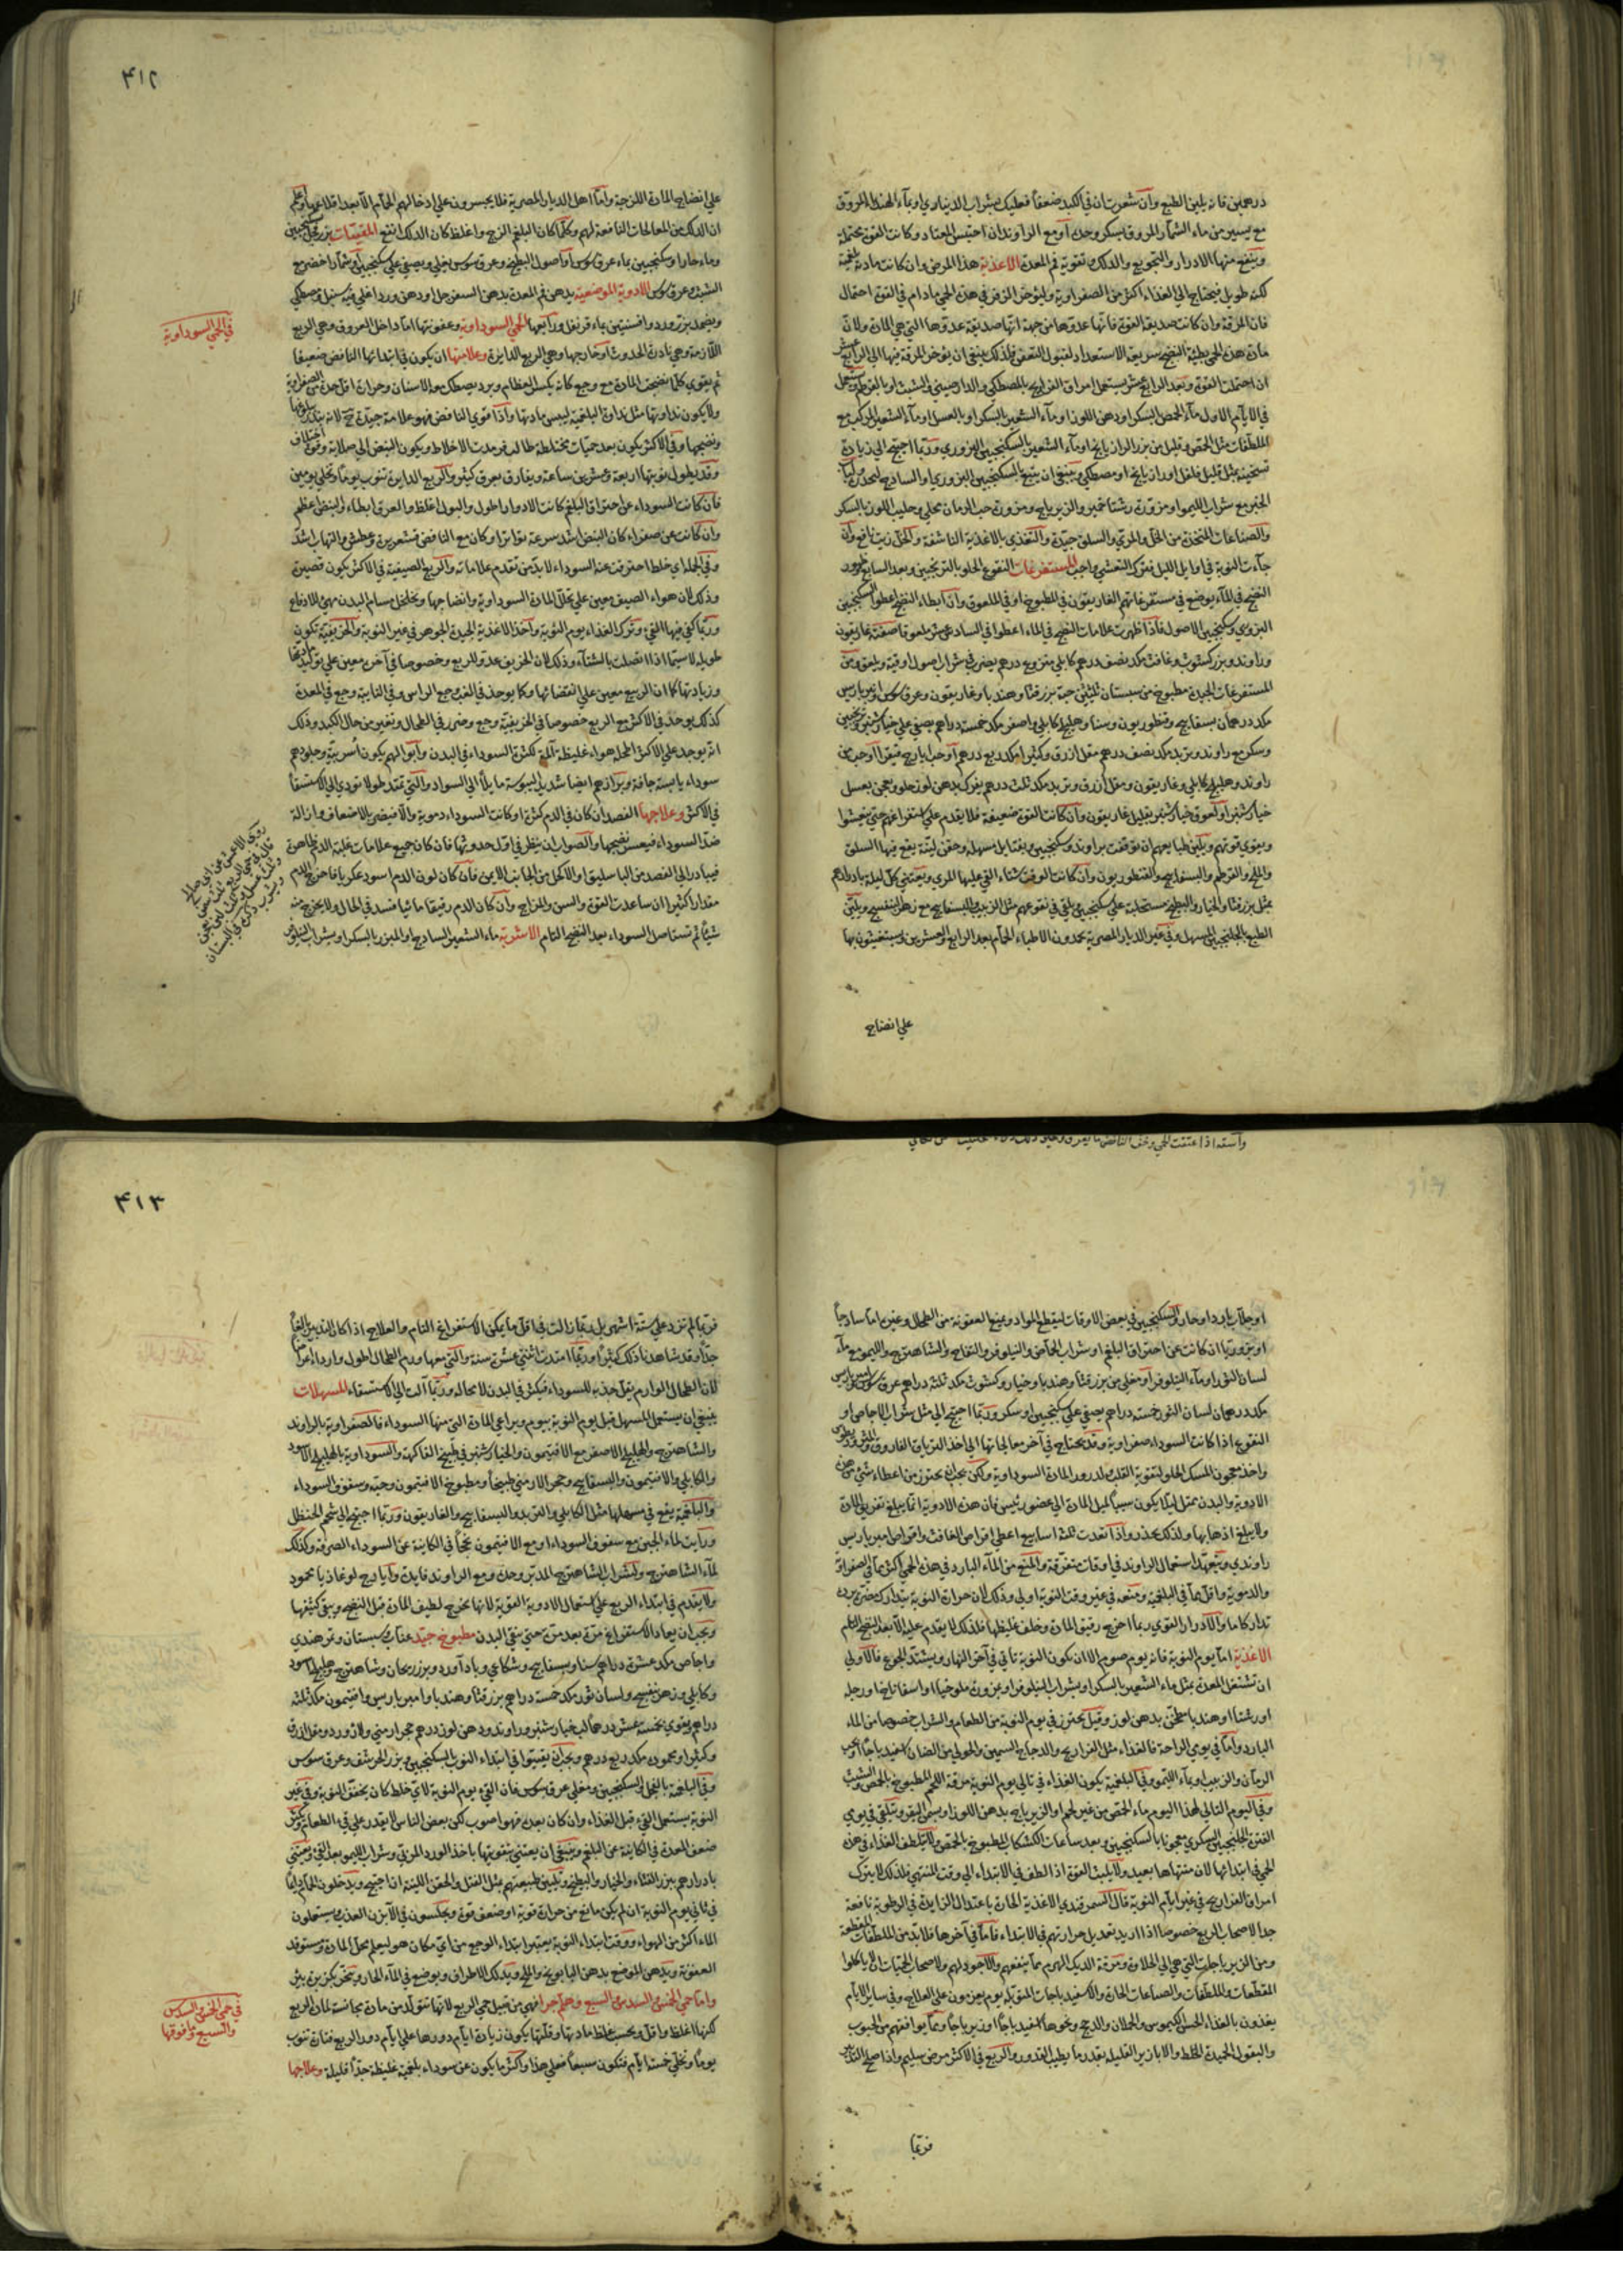 درهمين فانه يلين الطبع وان شعرت ان في الكبد ضعفا فعليك بشراب الديناري او بماء الهندبا المروق
مع يسير من ماء الشمار المروق بسكر وحده او مع الراوند ان احتبس المعتاد وكانت القوة محتملة
وينفع منها الادرار والتجويع والدلك وتقوية فم المعدة الاغذية هذا المرض وان كانت مادته بلغمية
لكنه طويل فيحتاج الى الغذاء اكثر من الصفراوية وليؤخر الزفر في هذه الحمى مادام في القوة احتمال
فان المرقة وان كانت صديقة القوة فانها عدوها من جهة انها صديقة عدوها التي هي المادة ولان
مادة هذه الحمى بطيئة النضج سريعة الاستعداد لقبول التعفن فلذلك ينبغي ان يؤخر المرقة فيها الى الرابع عشر
ان احتملت القوة وبعد الرابع عشر يستعمل امراق الفراريج بالمصطكى والدارصيني والشبت او بالقرطم
في الايام الاول ماء الحمص بالسكر او دهن اللوز او ماء الشعير بالسكر او بالعسل او ماء الشعير المركب مع
الملطفات مثل الحمص وقليل من بزر الرازيانج او ماء الشعير بالسكنجبين البزوري وربما احتيج الى زيادة
تسخينه بمثل قليل فلفل او رازيانج او مصطكى وينبغي ان يتبع بالسكنجبين البزوري او الساذج
الخبز مع شراب الليمو او مزورة رشتا نمير والزيرباج ومزورة حب الرمان محلى وحليب اللوز بالسكر
والصباغات المتخذة من الخل والمري والسلق جيدة والتغذي بالاغذية الناشفة والخل زيت نافع وان
جاءت النوبة في اوايل الليل فترك التعشي واجب المستفرغات النقوع الحلو بالترنجبين وبعد السابع
النضج في الماء يوضع في مستفرغاتهم الغاريقون في المطبوخ او في الملعوق وان ابطاء النضج اعطوا السكنجبين
البزوري وسكنجبين الاصول فاذا ظهرت علامات النضج في الماء اعطوا في السادس عشر ملعوقا صفته غاريقون
وراوند وبزر كشوث وغافت مكد نصف درهم كابلي منزوع درهم يضرب في شراب اصول اوقية ويلعق ومن
المستفرغات الجيدة مطبوخ من سبستان ثلثين حبة بزر قثا وهندبا وغاريقون وعرق سوس وامبرباريس
مكد درهمان بسفايج وقنطوريون وسنا وهليلج كابلي واصفر مكد خمسة دراهم يصفى على خيارشنبر وترنجبين
وسكر مع راوند وتربد مكد نصف درهم مقل ازرق وكثيرا مكد ربع درهم او حب ايارج فيقرا او حب من
راوند وهليلج كابلي وغاريقون ومقل ازرق وتربد مكد ثلث درهم يفرك بدهن لوز حلو ويعجن بعسل
خيارشنبر او لعوق خيارشنبر بقليل غاريقون وان كانت القوة ضعيفة فلا يقدم على استفراغهم حتى ينعشوا
ويقوى قوتهم ويلين طبايعهم ان توقفت براوند وسكنجبين وبفتايل مسهلة وحقن لينة يقع فيها السلق
والملح والقرطم والبسفايج والقنطوريون وان كانت الوقت شتاء القي عليها المري ويعتنى كل ليلة بادرارهم
بمثل بزر قثا والخيار والبطيخ مستحلبة على سكنجبين ويلقى في نقوعهم مثل الزبيب والبسفايج مع زهر البنفسج ويلين
الطبع بالجلنجبين المسهل وفي غير الديار المصرية يحمدون الاطباء الحمام بعد الرابع والعشرين ويستعينون بها
على انضاج
٤١٢
على انضاج المادة اللزجة واما اهل الديار المصرية فلا يجسرون على ادخالهم الحمام الا بعد اقلاعها واعلم
ان الدلك من المعالجات النافعة لهم وكلما كان البلغم الزج واغلظ كان الدلك انفع المقيئات بزر فجل بسكنجبين
وماء حار او سكنجبين بماء عرق سوس او اصول البطيخ وعرق سوس يغلى ويصفى على سكنجبين او شمار اخضر مع
الشبث وعرق سوس الادوية الموضعية يدهن فم المعدة بدهن السفرجل او دهن ورد اغلي فيه سنبل ومصطكى
ويضمد بزر ورد وافسنتين بماء قرنفل ورابعها الحمى السوداوية وعفونتها اما داخل العروق وهي الربع
اللازمة وهي نادرة الحدوث او خارجها وهي الربع الدايرة وعلامتها ان يكون في ابتدائها النافض ضعيفا
ثم يقوى كلما نضجت المادة مع وجع كانه يكسر العظام وبرد يصطك معه الاسنان وحرارة اقل من الصفراوية
ولا يكون نداوتها مثل نداوة البلغمية ليبس مادتها واذا قوي النافض فهو علامة جيدة
ونضجها وفي الاكثر يكون بعد حميات مختلطة طالت فرمدت الاخلاط ويكون النبض الى صلابة وفرق اختلاف
وقد يطول نوبتها اربعة وعشرين ساعة ويفارق بعرق كثير والربع الدايرة تنوب يوما وتخلي يومين
فان كانت السوداء عن احتراق البلغم كانت الادوار اطول والبول اغلظ والعرق ابطاء والنبض اعظم
وان كانت عن صفراء كان النبض اشد سرعة وتواترا وكان مع النافض قشعريرة وعطش والتهاب اشد
وفي الجملة اي خلط احترقت عنه السوداء لا بد من تقدم علاماته والربع الصيفية في الاكثر يكون قصيرة
وذلك لان هواء الصيف معين على تحلل المادة السوداوية وانضاجها وتخلخل مسام البدن مهيء للاندفاع
وربما كفى فيها القيء وترك الغذاء يوم النوبة واخذ الاغذية الجيدة الجوهر في غير النوبة والخريفية تكون
طويلة لا سيما اذا اتصلت بالشتاء وذلك لان الخريف عدو للربع وخصوصا في آخره معين على توليد مادتها
وزيادتها كما ان الربيع معين على انقضائها وكما يوجد في الغب وجع الراس وفي النايبة وجع في المعدة
كذلك يوجد في الاكثر مع الربع خصوصا في الخريفية وجع وضرر في الطحال وتغير من حال الكبد وذلك
انه يوجد على الاكثر الحمله هواء غليظة آلمة لكثرة السوداء في البدن وابوالهم يكون اسربية وجلودهم
سوداء يابسة جافة وبرازهم ايضا شديد اليبوسة مايلا الى السواد والتي تمتد طولا تودي الى الاستسقا
في الاكثر وعلاجها الفصد ان كان في الدم كثرة او كانت السوداء دموية والا فيضر بالاضعاف وازالة
ضد السوداء فيعسر نضجها والصواب ان ينظر في اول حدوثها فان كان جميع علامات غلبة الدم ظاهرة
فيبادر الى الفصد من الباسليق او الاكحل من الجانب الايمن فان كان لون الدم اسود عكر يا فاخرج الدم
مقدارا كثيرا ان ساعدت القوة والسن والمزاج وان كان الدم رقيقا مائيا فسد في الحال ولا يخرج منه
شيئا ثم تستاصل السوداء بعد النضج التام الاشربة ماء الشعير الساذج او المبزر بالسكر او بشراب النيلوفر
في الحمى السوداوية
٤١٣
او جلاب بارد او حار والسكنجبين في بعض الاوقات ليقطع المواد ويمنع العفونة من الطحال وغيره اما ساذجا
او بزوريا ان كانت عن احتراق البلغم او شراب الحماض والنيلوفر والتفاح والشاهترج والليمو مع ماء
لسان الثور او ماء النيلوفر او مغلى من بزر قثا وهندبا وخيار وكشوث مكد ثلثة دراهم عرق سوس وامبرباريس
مكد درهمان لسان الثور خمسة دراهم يصفى على سكنجبين او سكر وربما احتيج الى مثل شراب الاجاص او
النقوع اذا كانت السوداء صفراوية وقد يحتاج في آخر معالجاتها الى اخذ الترياق الفاروق
واخذ معجون المسك الحلو لتقوية القلب ولدرور المادة السوداوية ولكن يجب ان يحترز من اعطاء شيء من هذه
الادوية والبدن ممتل لئلا يكون سببا لميل المادة الى عضو رئيس فان هذه الادوية انما يبلغ تفريق المادة
ولا يبلغ اذهابها ولذلك يحذر واذا تعدت ثلثة اسابيع اعطي اقراص الغافت واقراص امبرباريس
راوندي ويتعهد استعمال الراوند في اوقات متفرقة والمنع من الماء البارد في هذه الحمى اكثر مما في الصفراوية
والدموية واقل مما في البلغمية ومنعه في غير وقت النوبة اولى وذلك لان حرارة النوبة يتدارك ضرر برده
تداركا ما والادرار القوي ربما اخرج رقيق المادة وخلف غليظها فلذلك لا يقدم عليه الا بعد النضج التام
الاغذية اما يوم النوبة فانه يوم صوم الا ان تكون النوبة تاتي في آخر النهار ويشتد الجوع فالاولى
ان تشتغل المعدة بمثل ماء الشعير بالسكر او بشراب النيلوفر او بمزورة ملوخيا او اسفاناخ او رجلة
او رشتا او هندبا مطجن بدهن لوز وقيل يحترز في يوم النوبة من الطعام والشراب خصوصا من الماء
البارد واما في يومي الراحة فالغذاء مثل الفراريج والدجاج السمين والحولي من الضان اسفيدباجا او بحب
الرمان والزبيب او بماء الليمو وفي البلغمية يكون الغذاء في تالي يوم النوبة مرقة اللحم المطبوخ بالحمص والشبت
وفي اليوم التالي لهذا اليوم ماء الحمص من غير لحم او الزيرباج بدهن اللوز او بسمن البقر ويتلقى في يومي
الفترة الجلنجبين السكري معجونا بالسكنجبين وبعد ساعات الكشكاب المطبوخ بالحمص ولا يلطف الغذاء في هذه
الحمى في ابتدائها لان منتهاها بعيد ولا يلبث القوة اذا لطف في الابتداء الى وقت المنتهى فلذلك لا يترك
امراق الفراريج في غير ايام النوبة قال السمرقندي الاغذية الحارة باعتدال الزايدة في الرطوبة نافعة
جدا لاصحاب الربع خصوصا اذا اريد تعديل حرارتهم في الابتداء فاما في آخرها فلا بد من الملطفات المقطعة
ومن الزيرباجات التي هي الى الحلاوة ومرقة الديك الهرم مما ينفعهم والاجود لهم ولاصحاب الحميات ان لا ياكلوا
المقطعات والملطفات والصباغات الحارة والاسفيدباجات المتوبلة يوم يعزمون على العلاج وفي ساير الايام
يغذون بالغذاء الحسن الكيموس والحملان والدجج ونحوها اسفيدباجا او زيرباجا ومما يوافقهم من الحبوب
والبقول الحميدة الخلط والابازير القليلة بقدر ما يطيب القدور والربع في الاكثر مرض سليم واذا صلح التدبير
فربما
فربما لم تزد على ستة اشهر بل ربما زالت في اقل ما يمكن الاستفراغ التام والعلاج اذا كان التدبير بالغا
جدا وقد شاهدنا ذلك كثيرا وربما امتدت اثنتي عشرة سنة والتي معها ورم الطحال اطول واردا اعراضا
لان الطحال الوارم يقل جذبه للسوداء فيكثر في البدن لا محالة وربما آلت الى الاستسقاء المسهلات
ينبغي ان يستعمل المسهل قبل يوم النوبة بيوم ويراعى المادة التي منها السوداء فالصفراوية بالراوند
والشاهترج والهليلج الاصفر مع الافتيمون والخيارشنبر في طبيخ الفاكهة والسوداوية بالهليلج الاسود
والكابلي والافتيمون والبسفايج وحجر الارمني طبيخا ومطبوخ الافتيمون وحبه وسفوف السوداء
والبلغمية يقع في مسهلها مثل الكابلي والتربد والبسفايج والغاريقون وربما احتيج الى شحم الحنظل
ورايت لماء الجبن مع سفوف السوداء او مع الافتيمون نجحا في الكاينة عن السوداء الصرفة وكذلك
لماء الشاهترج ولشراب الشاهترج المدبر وحده ومع الراوند فايدة وايارج لوغاذيا محمود
ولا يقدم في ابتداء الربع على استعمال الادوية القوية لانها تخرج لطيف المادة قبل النضج ويبقى كثيفها
ويجب ان يعاد الاستفراغ مرة بعد مرة حتى ينقى البدن مطبوخ جيد عناب وسبستان وتمر هندي
واجاص مكد عشرة دراهم سنا وبسفايج وشكاعى وباداورد وبزر ريحان وشاهترج وهليلج اسود
وكابلي وزهر بنفسج ولسان ثور مكد خمسة دراهم بزر قثا وهندبا وامبرباريس وافتيمون مكد ثلثة
دراهم يقوى بخمسة عشر درهما لب خيارشنبر وراوند ودهن لوز درهم حجر ارمني ولازورد ومقل ازرق
وكثيرا ومحمودة مكد ربع درهم ويجب ان يقيئوا في ابتداء النوب بالسكنجبين وبزر الحرشف وعرق سوس
وفي البلغمية بالفجل والسكنجبين ومغلى عرق سوس فان القيء يوم النوبة لاي خلط كان يخفف النوبة وفي غير
النوبة يستعمل القيء قبل الغذاء وان كان بعده فهو اصوب لكن بعض الناس لا يقدر على قيء الطعام
ضعف المعدة في الكاينة عن البلغم وينبغي ان يعتنى بتقويتها باخذ الورد المربى وشراب الليمو بعد القيء ويعتنى
بادرارهم ببزر القثاء والخيار والبطيخ وتليين طبيعتهم بمثل الفتل والحقن اللينة اذا احتيج ويدخلون الحمام دايما
في ثاني يوم النوبة ان لم يكن مانع من حرارة قوية او ضعف قوة ويجلسون في الآبزن العذب ويستعملون
الماء اكثر من الهواء ووقت ابتداء النوبة يعتبر ابتداء الوجع من اي مكان هو ليعلم محل المادة ومستوقد
العفونة ويدهن الموضع بدهن البابونج والملح ويدلك الاطراف ويوضع في الماء الحار
واما حمى الخمس والسدس والسبع وهلم جرا فهي من قبيل حمى الربع لانها تتولد من مادة مجانسة لمادة الربع
لكنها اغلظ واقل وبحسب غلظ مادتها وقلتها يكون زيادة ايام دورها على ايام دور الربع فتارة تنوب
يوما وتخلي خمسة ايام فتكون سبعا فعلى هذا واكثر ما يكون عن سوداء بلغمية غليظة جدا قليلة وعلاجها
في حمى الخمس والسدس
والسبع وما فوقها